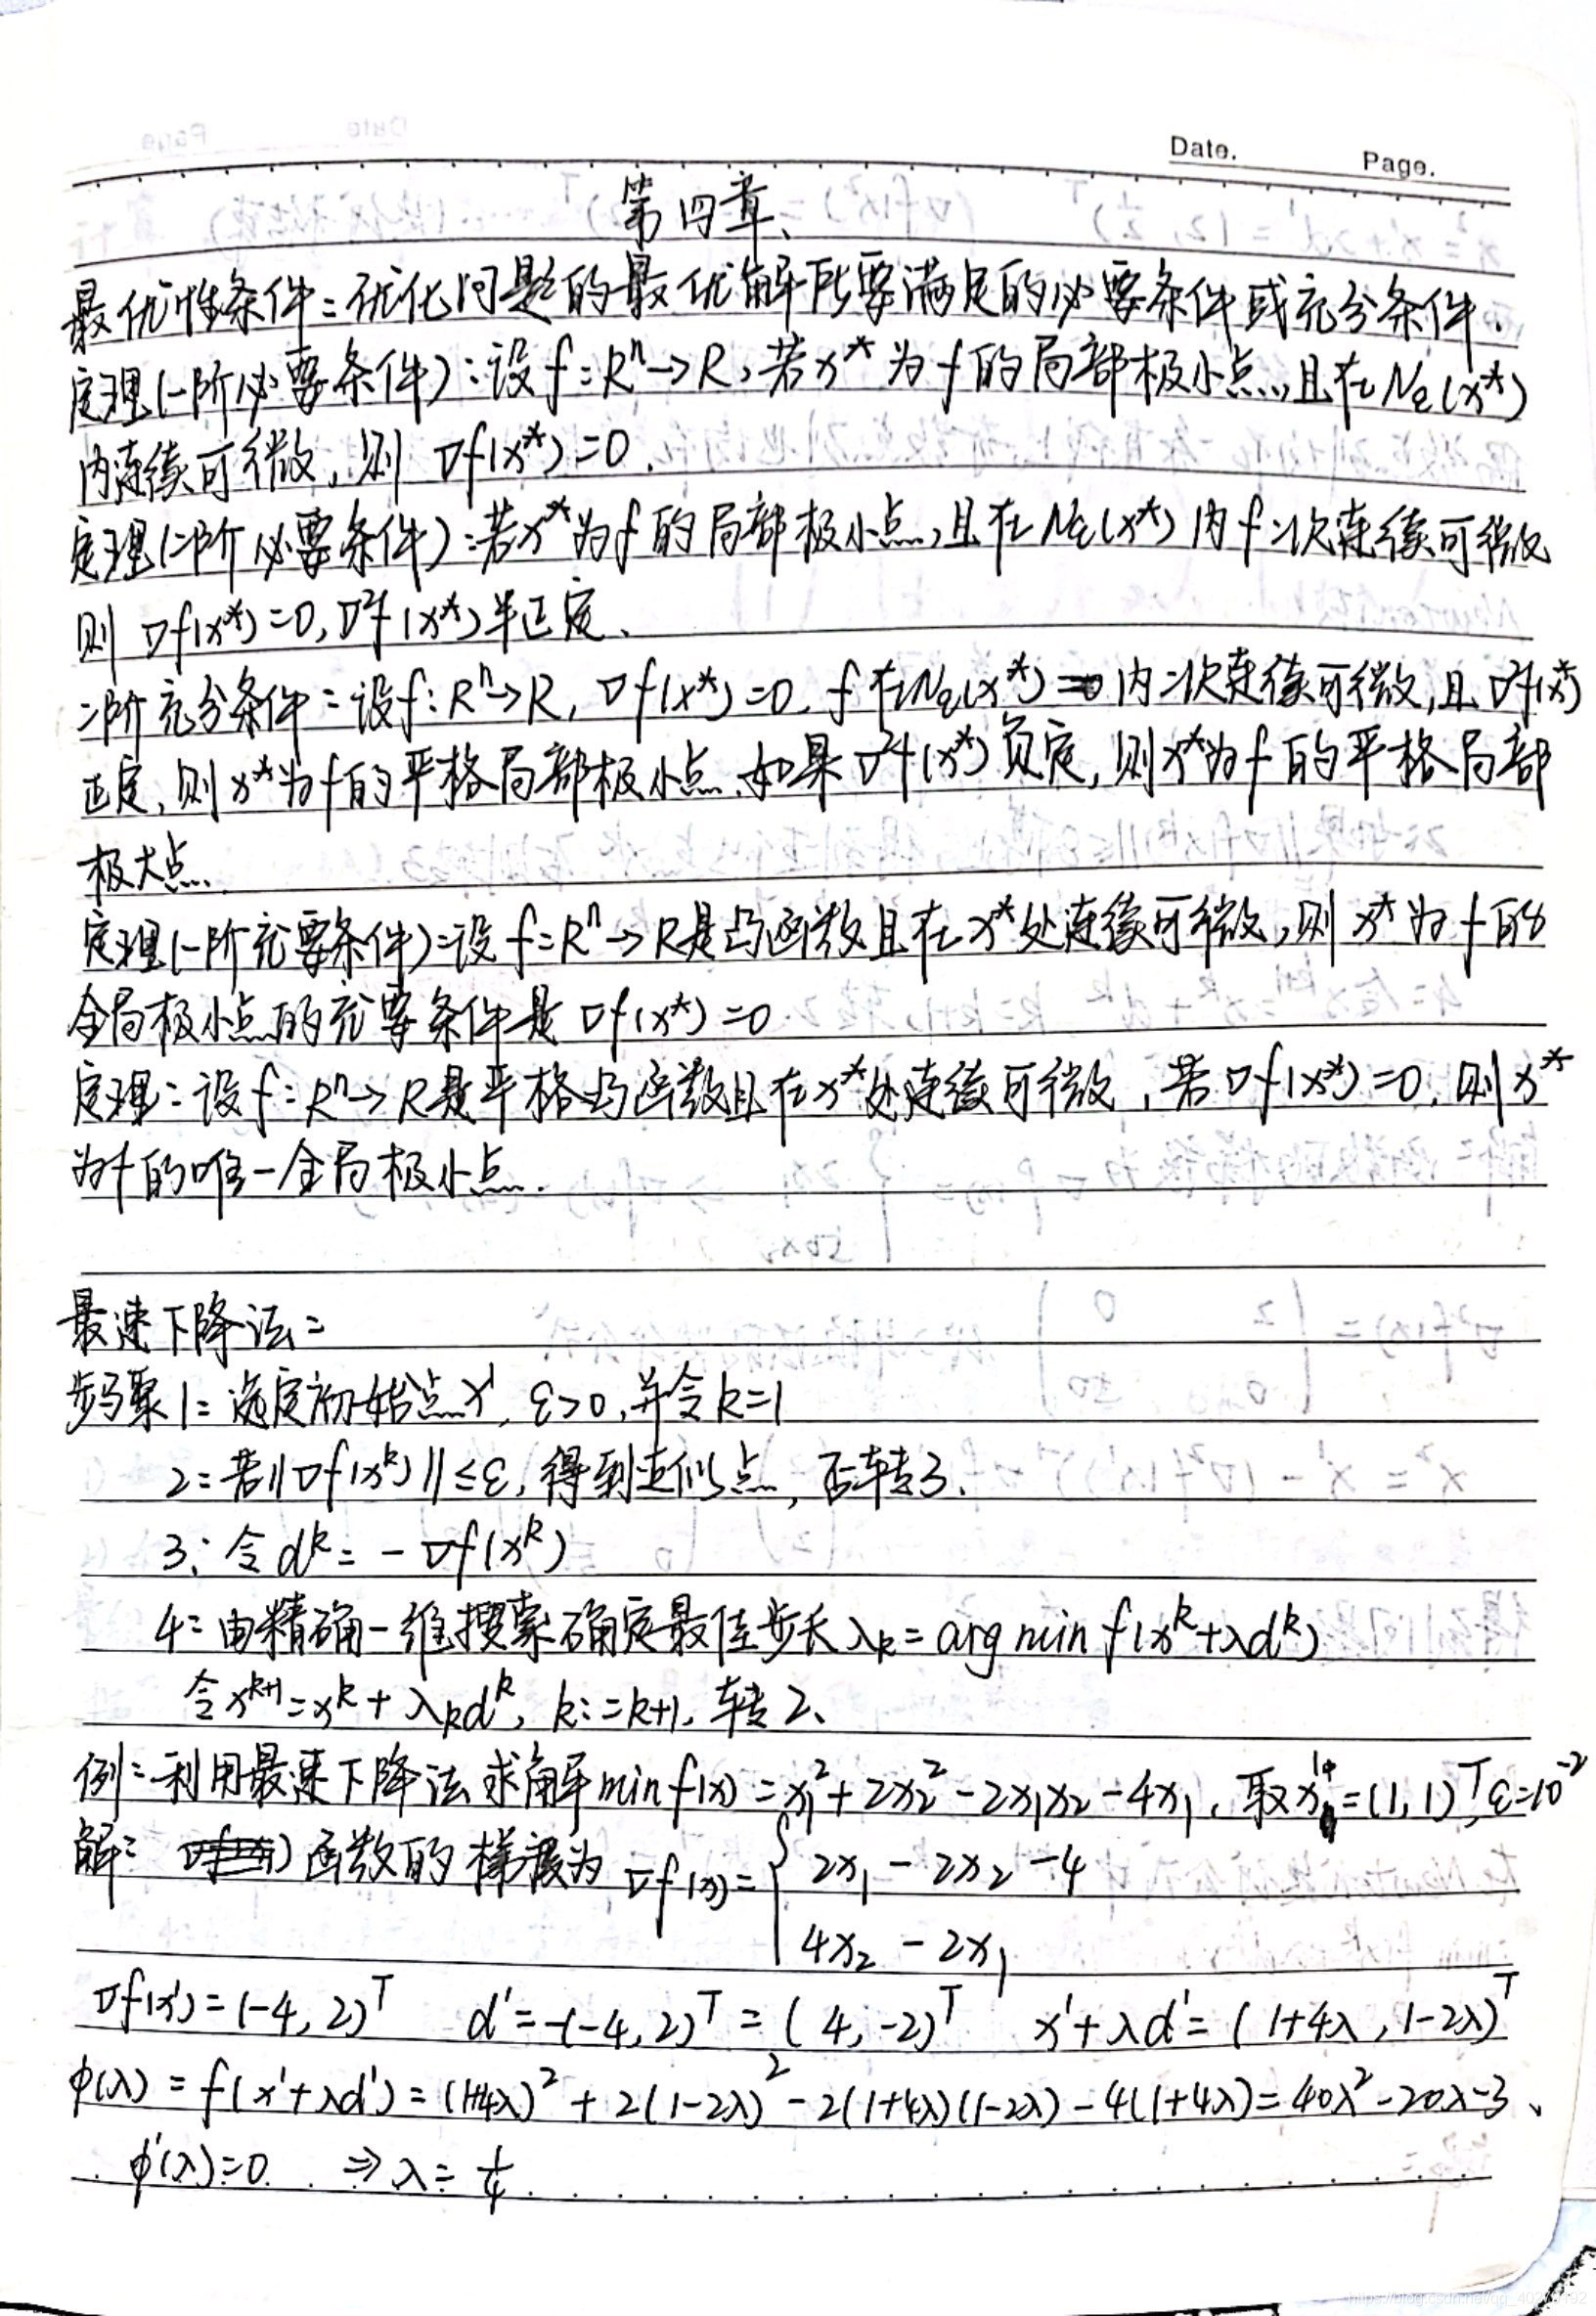 Date. Page.
第四章、
最优性条件:优化问题的最优解所要满足的必要条件或充分条件.
定理(一阶必要条件):设f:Rⁿ→R,若x*为f的局部极小点,且在Nε(x*)
内连续可微,则 ∇f(x*)=0.
定理(二阶必要条件):若x*为f的局部极小点,且在Nε(x*)内f二次连续可微
则 ∇f(x*)=0,∇²f(x*)半正定、
二阶充分条件:设f:Rⁿ→R,∇f(x*)=0. f在Nε(x*)内二次连续可微,且∇²f(x*)
正定,则x*为f的严格局部极小点.如果∇²f(x*)负定,则x*为f的严格局部
极大点.
定理(一阶充要条件):设f:Rⁿ→R是凸函数且在x*处连续可微,则x*为f的
全局极小点的充要条件是∇f(x*)=0
定理:设f:Rⁿ→R是严格凸函数且在x*处连续可微,若∇f(x*)=0,则x*
为f的唯一全局极小点.
最速下降法:
步骤1:选定初始点x¹, ε>0,并令k=1
2:若||∇f(xᵏ)||≤ε,得到近似点,否转3.
3:令dᵏ=-∇f(xᵏ)
4:由精确一维搜索确定最佳步长λₖ=arg min f(xᵏ+λdᵏ)
令xᵏ⁺¹=xᵏ+λₖdᵏ, k:=k+1,转2、
例:利用最速下降法求解min f(x)=x₁²+2x₂²-2x₁x₂-4x₁,取x¹=(1,1)ᵀ,ε=10⁻²
解: 函数的梯度为 ∇f(x)={2x₁-2x₂-4
4x₂-2x₁
∇f(x¹)=(-4,2)ᵀ d¹=-(-4,2)ᵀ=(4,-2)ᵀ x¹+λd¹=(1+4λ,1-2λ)ᵀ
φ(λ)=f(x¹+λd¹)=(1+4λ)²+2(1-2λ)²-2(1+4λ)(1-2λ)-4(1+4λ)=40λ²-20λ-3、
φ'(λ)=0 ⇒λ=1/4